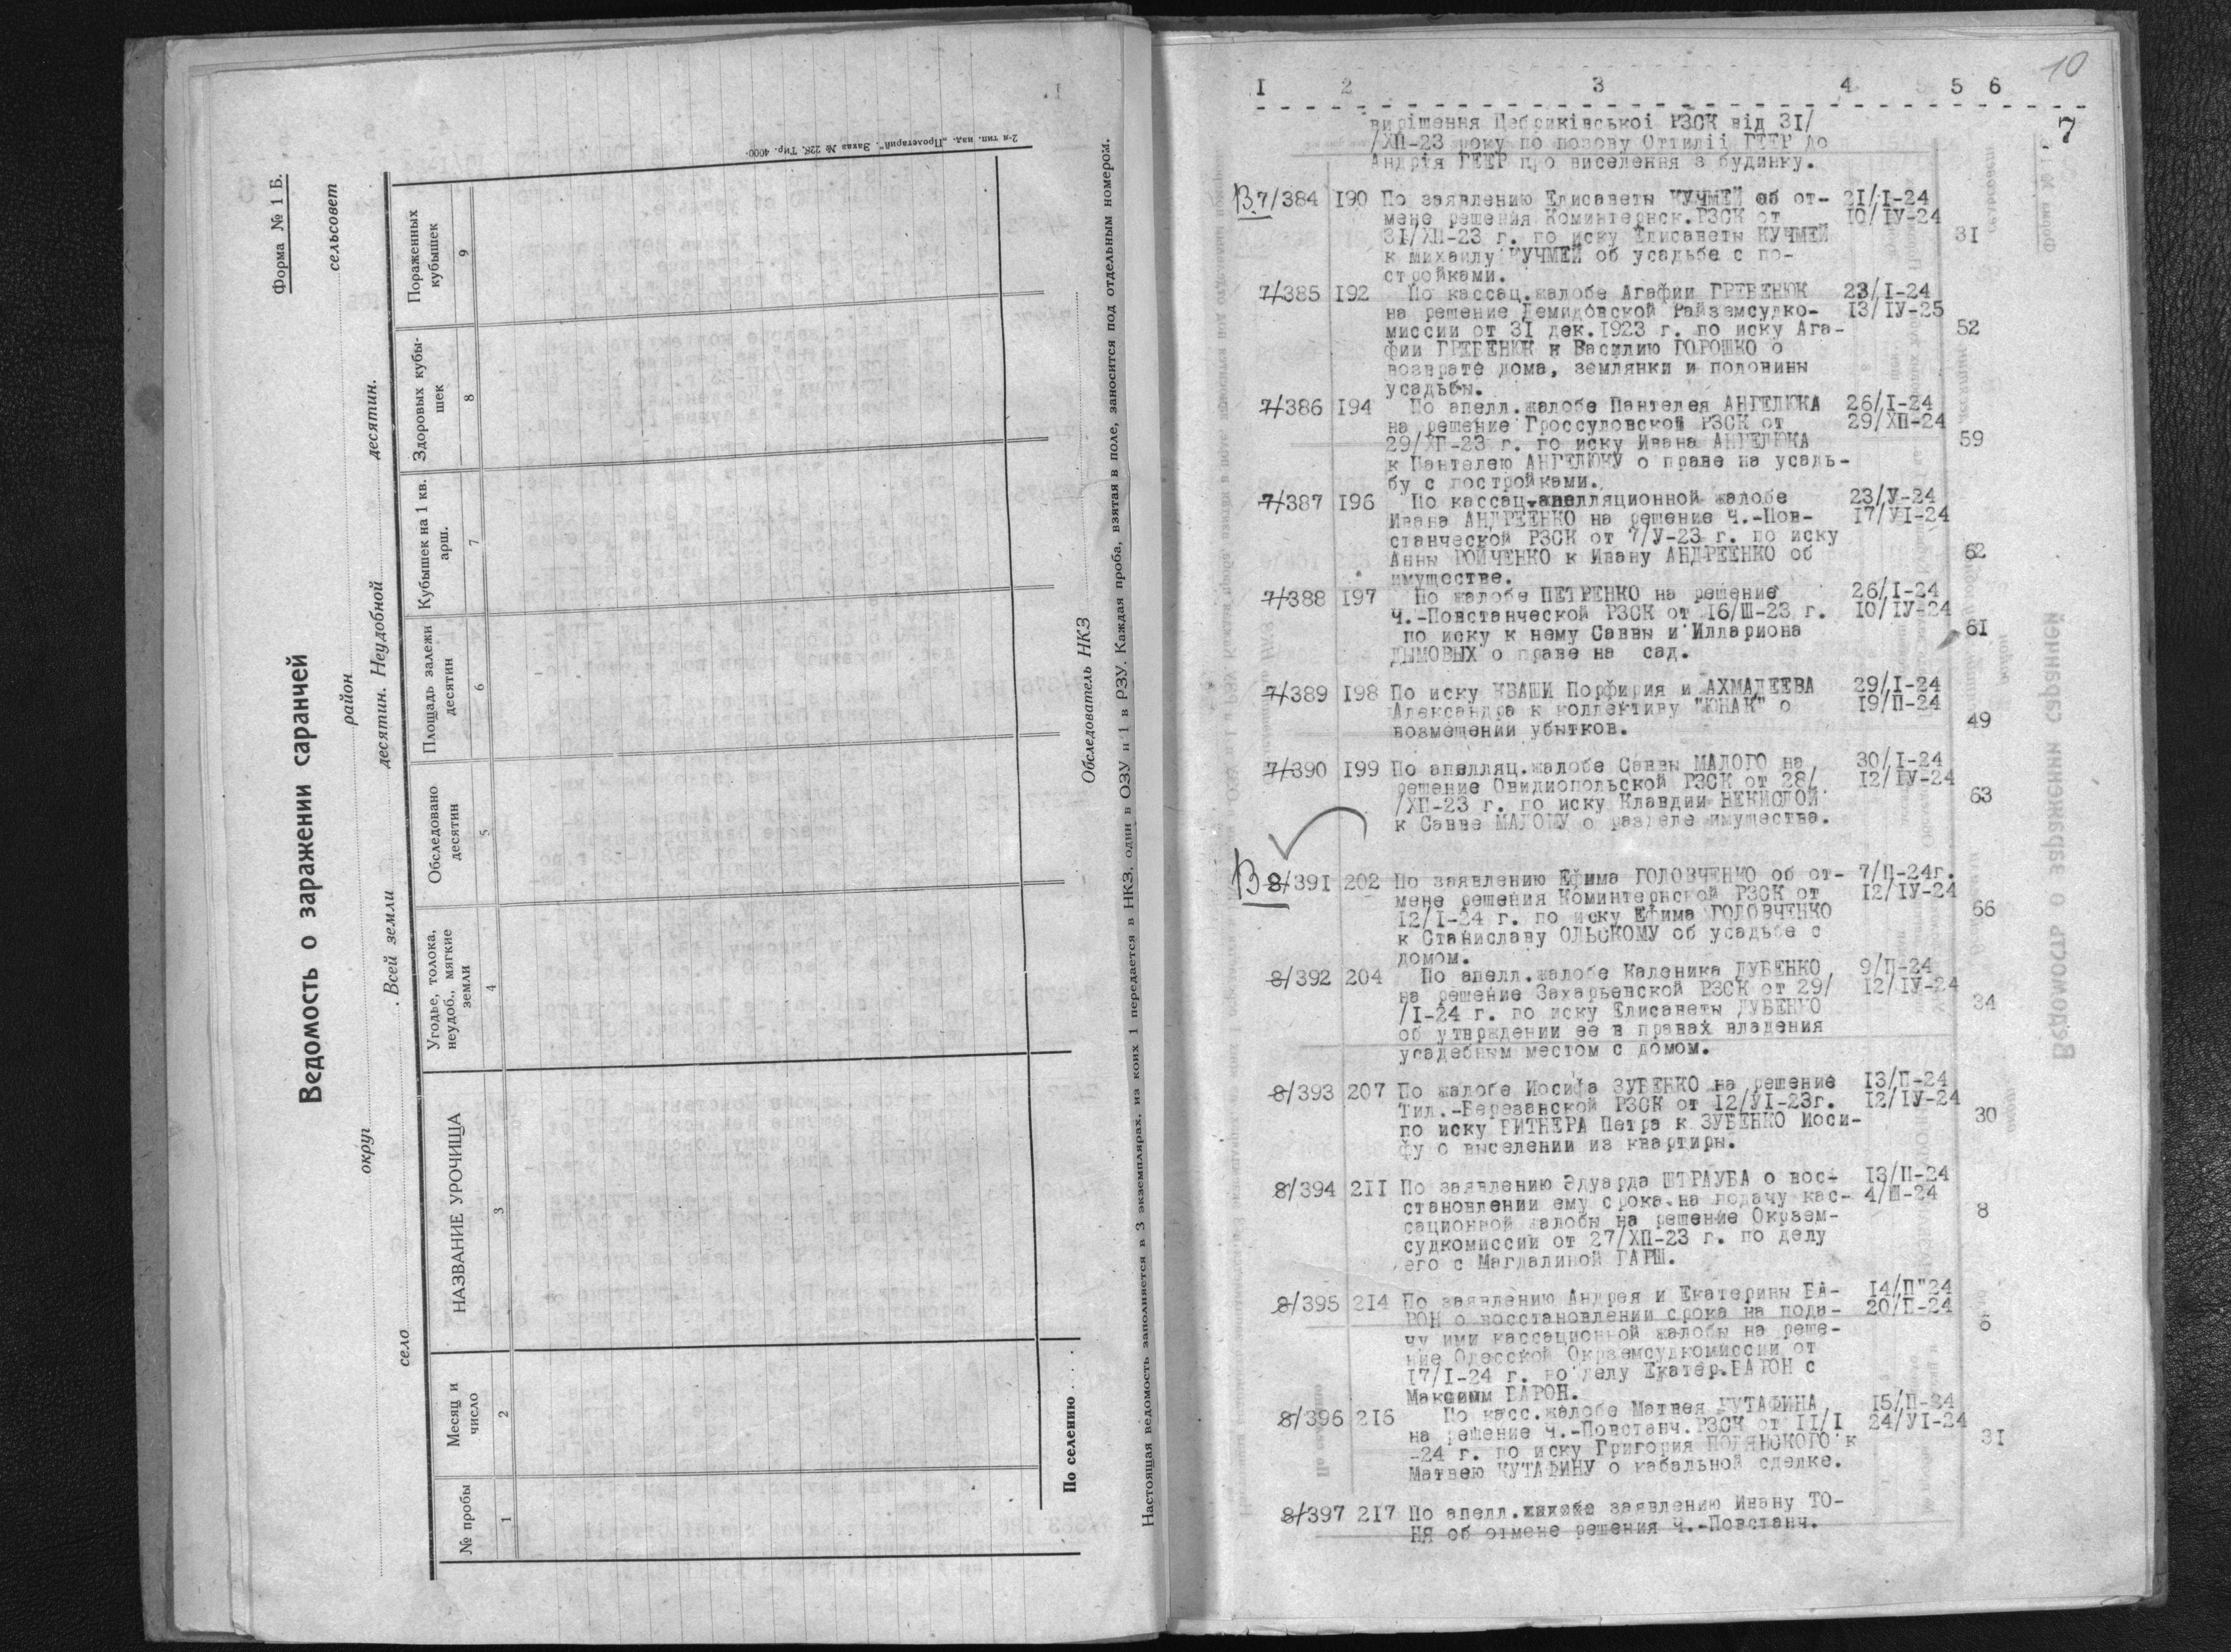 Форма № 1 Б.
Ведомость о заражении саранчей
округ район сельсовет
село . Всей земли десятин. Неудобной десятин.
№ пробы
Месяц и число
НАЗВАНИЕ УРОЧИЩА
Угодье, толока, неудоб., мягкие земли
Обследовано десятин
Площадь залежи десятин
Кубышек на 1 кв. арш.
Здоровых кубы-шек
Пораженных кубышек
1 2 3 4 5 6 7 8 9
По селению . . . .
Обследователь НКЗ
Настоящая ведомость заполняется в 3 экземплярах, из коих 1 передается в НКЗ, один в ОЗУ и 1 в РЗУ. Каждая проба, взятая в поле, заносится под отдельным номером.
2-я тип. изд. „Пролетарий". Заказ № 228. Тир. 4000
10
I 2 3 4 5 6
7
вирішення Цебриківської РЗСК від 31/
/ХП-23 року по позову Оттилії ГЕЕР до
Андрія ГЕЕР про виселення з будинку.
В.7/384 190 По заявлению Елисаветы КУЧМЕЙ об от- 21/I-24
мене решения Коминтернск.РЗСК от 10/IУ-24
31/ХП-23 г. по иску Елисаветы КУЧМЕЙ 31
к Михаилу КУЧМЕЙ об усадьбе с по-
стройками.
7/385 192 По кассац.жалобе Агафии ГРЕБЕНЮК 23/I-24
на решение Демидовской Райземсудко- 13/IУ-25
миссии от 31 дек.1923 г. по иску Ага- 52
фии ГРЕБЕНЮК к Василию ГОРОШКО о
возврате дома, землянки и половины
усадьбы.
7/386 194 По апелл.жалобе Пантелея АНГЕЛЮКА 26/I-24
на решение Гроссуловской РЗСК от 29/ХП-24
29/ХП-23 г. по иску Ивана АНГЕЛЮКА 59
к Пантелею АНГЕЛЮКУ о праве на усадь-
бу с постройками.
7/387 196 По кассац-апелляционной жалобе 23/У-24
Ивана АНДРЕЕНКО на решение Ч.-Пов- 17/УI-24
станческой РЗСК от 7/У-23 г. по иску
Анны РОЙЧЕНКО к Ивану АНДРЕЕНКО об 62
имуществе.
7/388 197 По жалобе ПЕТРЕНКО на решение 26/I-24
Ч.-Повстанческой РЗСК от 16/Ш-23 г. 10/IУ-24
по иску к нему Саввы и Иллариона 61
ДЫМОВЫХ о праве на сад.
7/389 198 По иску КВАШИ Порфирия и АХМАДЕЕВА 29/I-24
Александра к коллективу "ЮНАК" о 19/П-24
возмещении убытков. 49
7/390 199 По апелляц.жалобе Саввы МАЛОГО на 30/I-24
решение Овидиопольской РЗСК от 28/ 12/IУ-24
/ХП-23 г. по иску Клавдии НЕКИСЛОЙ 63
к Савве МАЛОМУ о разделе имущества.
В 8/391 202 По заявлению Ефима ГОЛОВЧЕНКО об от- 7/П-24г.
мене решения Коминтернской РЗСК от 12/IУ-24
12/I-24 г. по иску Ефима ГОЛОВЧЕНКО 66
к Станиславу ОЛЬСКОМУ об усадьбе с
домом.
8/392 204 По апелл.жалобе Каленика ДУБЕНКО 9/П-24
на решение Захарьевской РЗСК от 29/ 12/IУ-24
/I-24 г. по иску Елисаветы ДУБЕНКО 34
об утврждении ее в правах владения
усадебным местом с домом.
8/393 207 По жалобе Иосифа ЗУБЕНКО на решение 13/П-24
Тил.-Березанской РЗСК от 12/УI-23г. 12/IУ-24
по иску ВИТНЕРА Петра к ЗУБЕНКО Иоси- 30
фу о выселении из квартиры.
8/394 211 По заявлению Эдуарда ШТРАУБА о вос- 13/П-24
становлении ему срока на подачу кас- 4/Ш-24
сационной жалобы на решение Окрзем- 8
судкомиссии от 27/ХП-23 г. по делу
его с Магдалиной ГАРШ.
8/395 214 По заявлению Андрея и Екатерины БА- 14/П"24
РОН о восстановлении срока на пода- 20/П-24
чу ими кассационной жалобы на реше- 6
ние Одесской Окрземсудкомиссии от
17/I-24 г. по делу Екатер.БАРОН с
Максимм БАРОН.
8/396 216 По касс.жалобе Матвея КУТАФИНА 15/П-24
на решение Ч.-Повстанч.РЗСК от 11/I 24/УI-24
-24 г. по иску Григория ПОЛЯНСКОГО к 31
Матвею КУТАФИНУ о кабальной сделке.
8/397 217 По апелл.жалобе заявлению Ивану ТО-
НЯ об отмене решения Ч.-Повстанч.